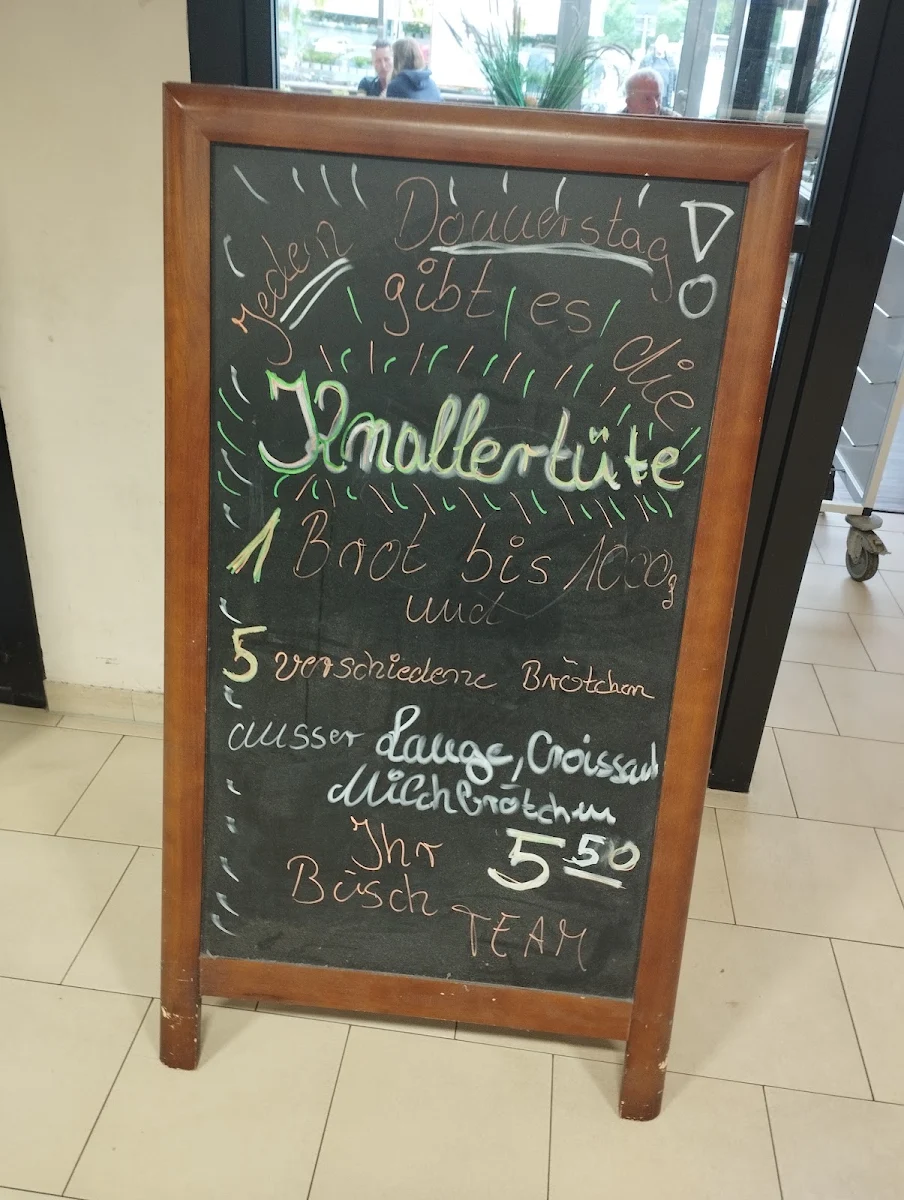 Jeden Donnerstag !
gibt es die
Knallertüte
1 Brot bis 1000g
und
5 verschiedene Brötchen
ausser Lauge, Croissant
Milchbrötchen
Ihr 5 50
Büsch
TEAM